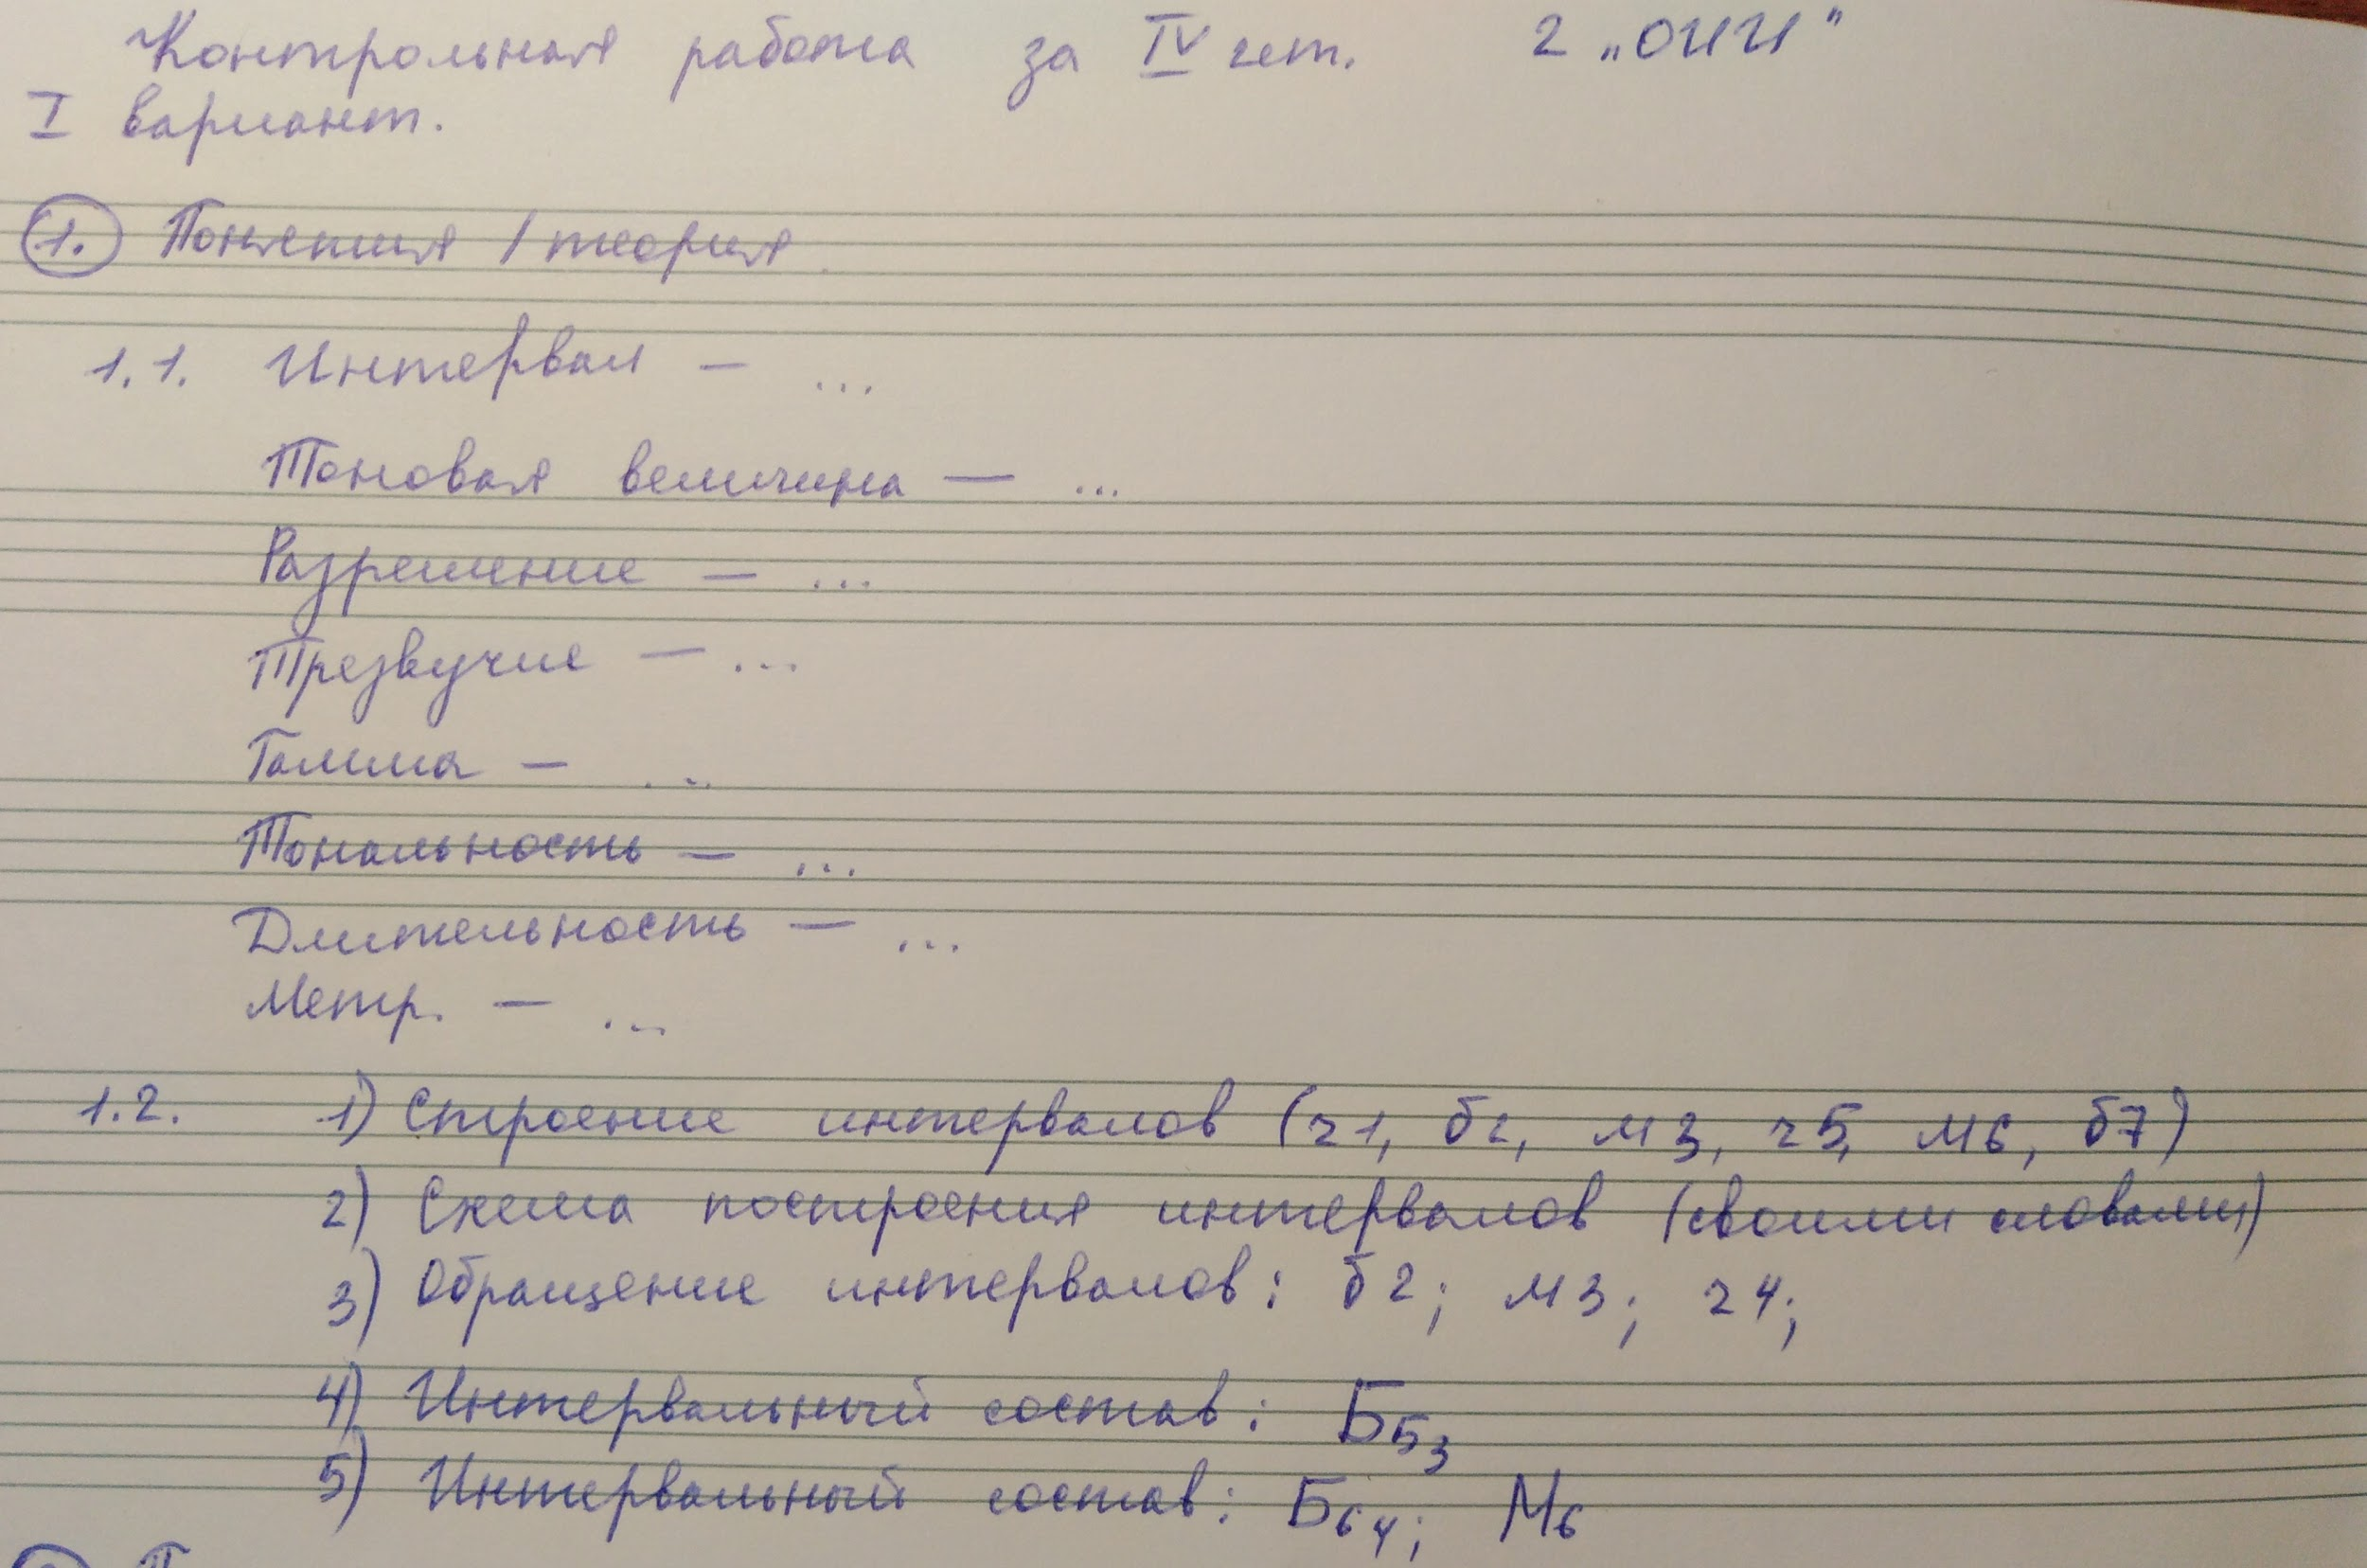 Контрольная работа за IV чет. 2 „ОИИ"
I вариант.
1. Понятия / теория
1.1. Интервал — ...
Тоновая величина — ...
Разрешение — ...
Трезвучие — ...
Гамма — ...
Тональность — ...
Длительность — ...
Метр. — ...
1.2. 1) Строение интервалов (ч1, б2, м3, ч5, м6, б7)
2) Схема построения интервалов (своими словами)
3) Обращение интервалов: б2; м3; ч4;
4) Интервальный состав: Б53
5) Интервальный состав: Б64; М6